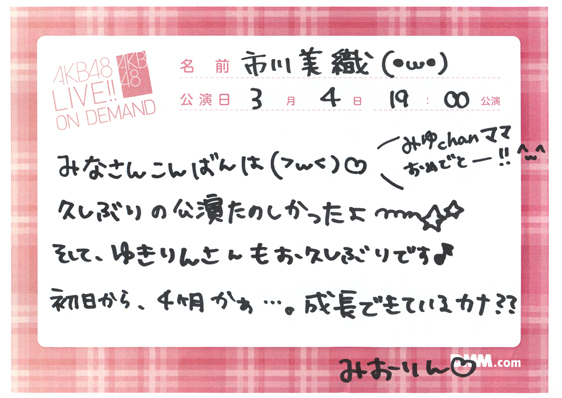 AKB48
LIVE!!
ON DEMAND
AKB
48
名前 市川美織(•ω•)
公演日 3月4日 19:00公演
みなさんこんばんは(>ω<)♡
みゆchanママ
おめでとー!!^ω^
久しぶりの公演たのしかったよ〰☆☆
そして、ゆきりんさんもお久しぶりです♪
初日から、4ヶ月かぁ…。成長できているカナ??
みおーりん♡
.com